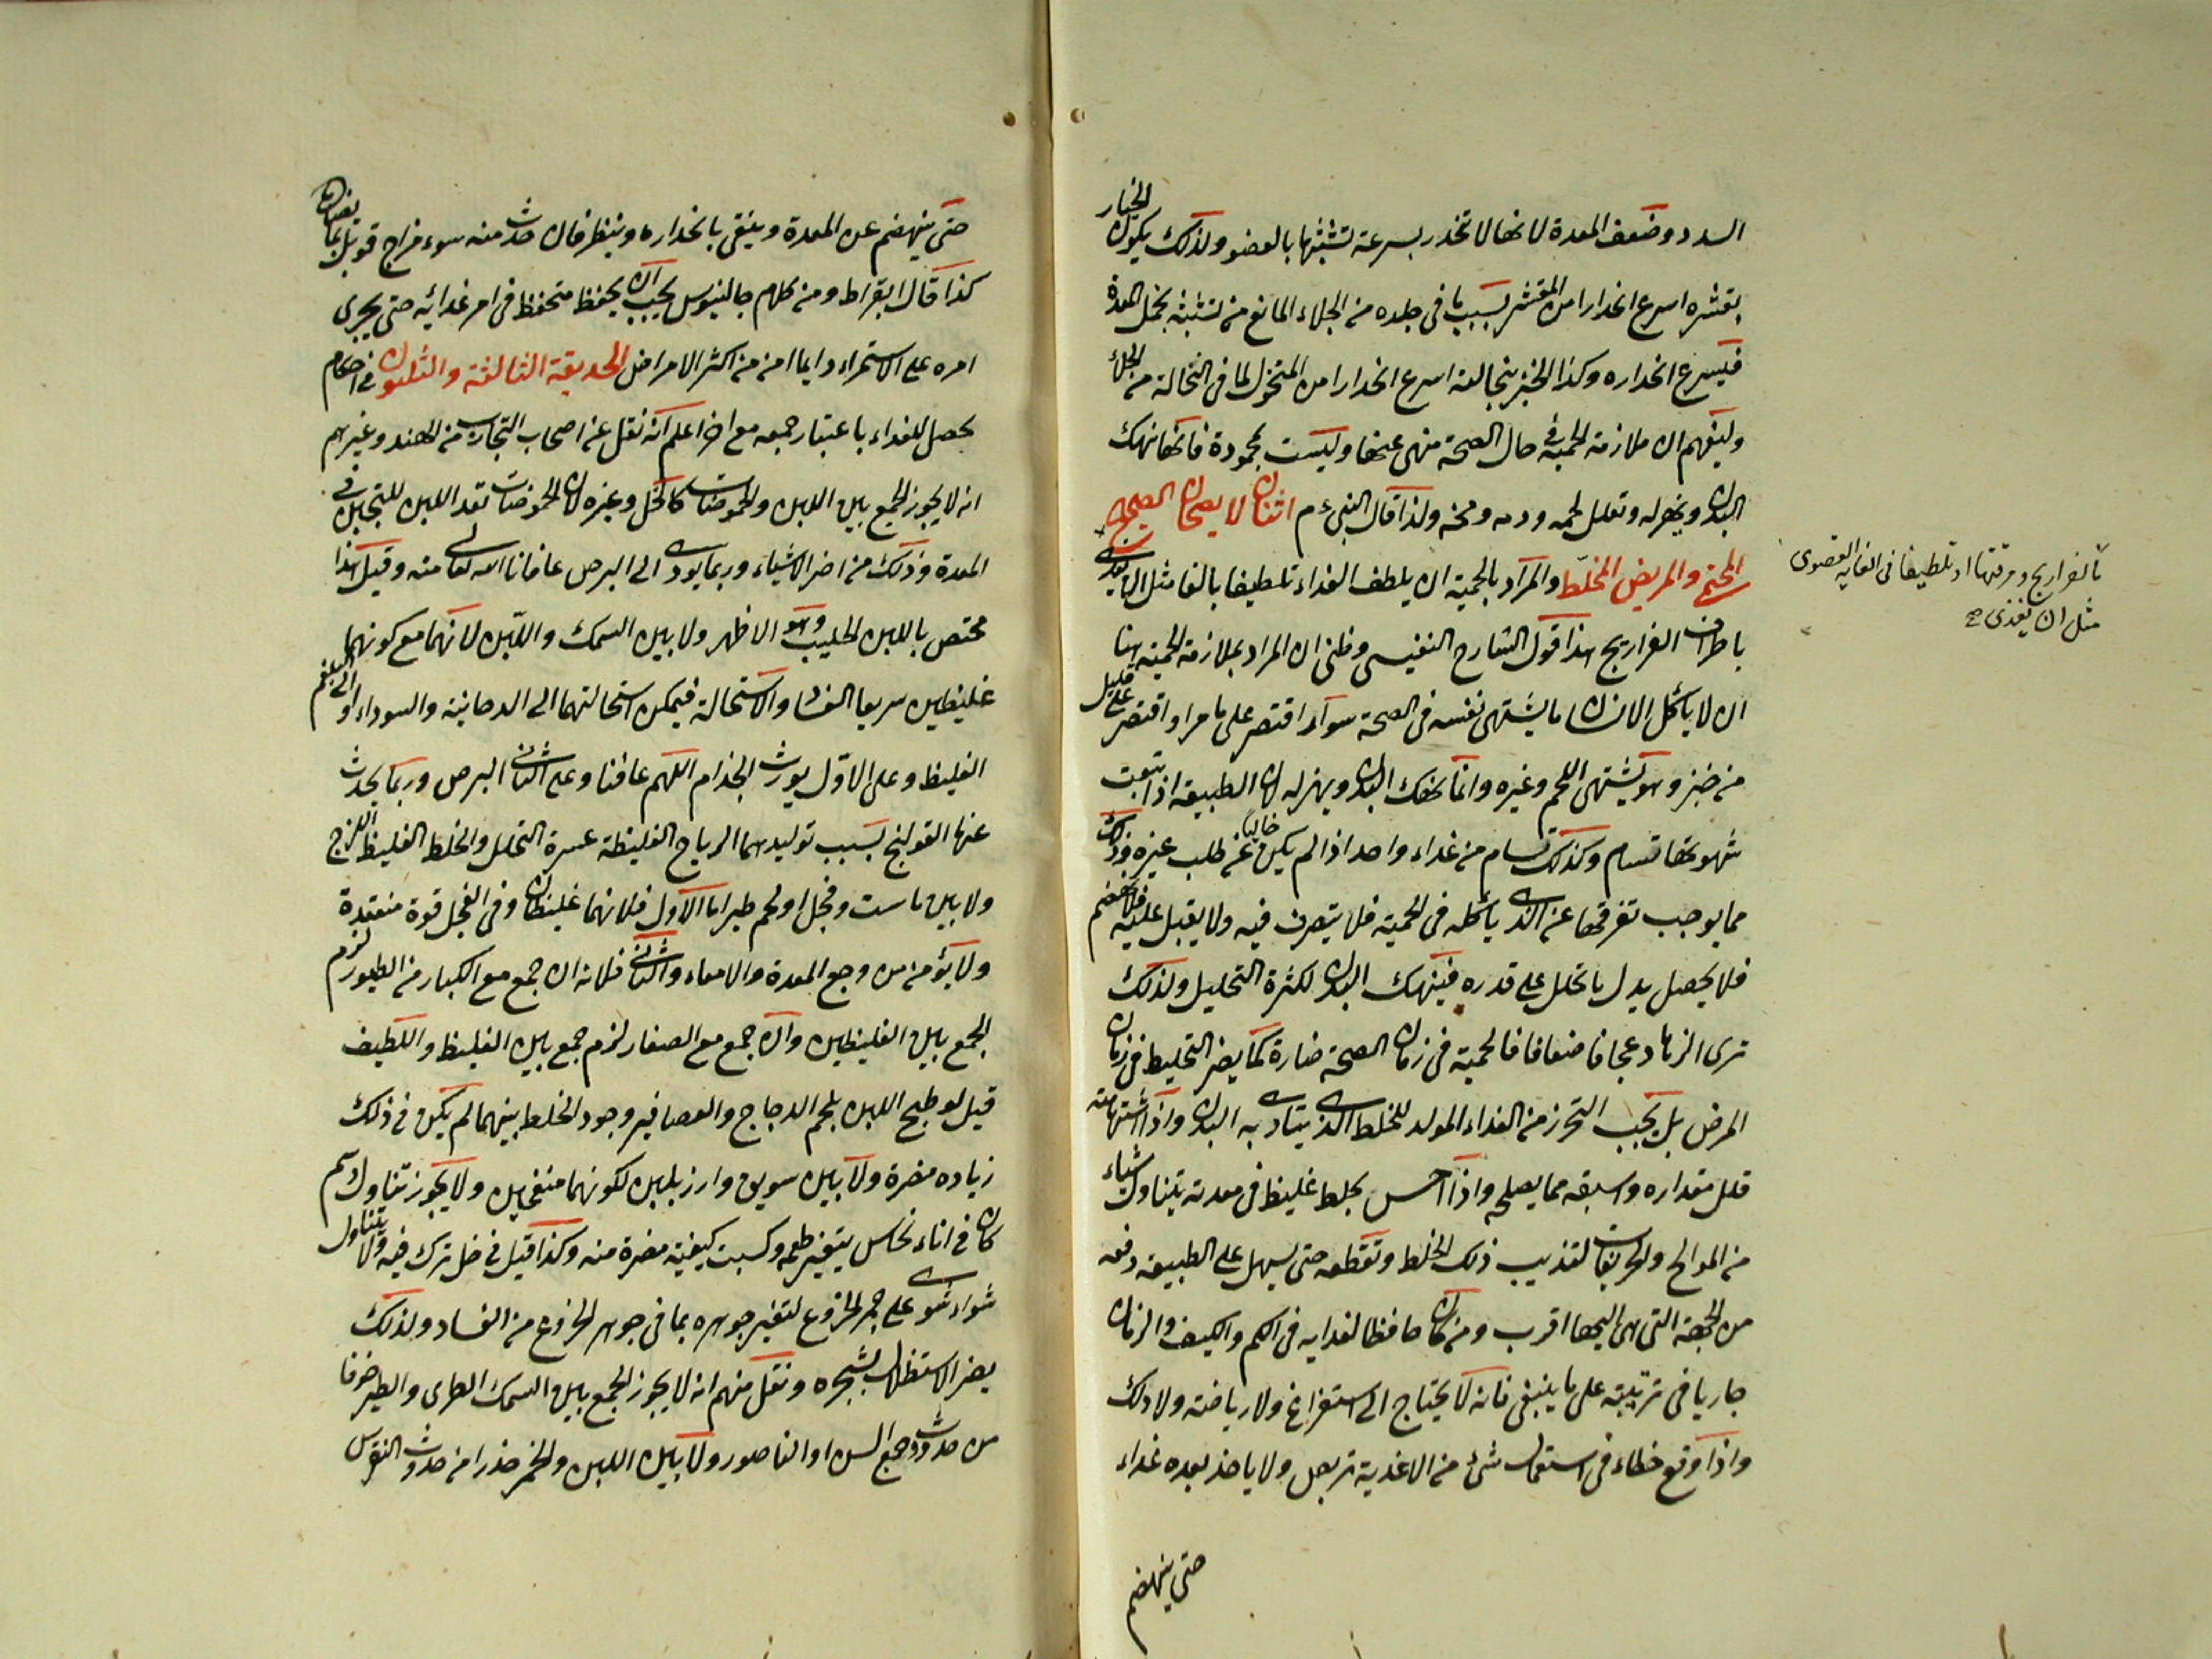 السدد وضعف المعدة لانها لا تنحدر بسرعة تشبثها بالعضو ولذلك يكون الخيار
بقشره اسرع انحدارا من المقشر بسبب ما في جلده من الجلاء المانع من تشبثه بخمل المعدة
فيسرع انحداره وكذا الخبز بنخالته اسرع انحدارا من المنخول لما في النخالة من الجلاء
وليفهم ان ملازمة الحمية في حال الصحة منهى عنها وليست بمحمودة فانها تنهك
البدن ويهزله وتقلل لحمه ودمه ومخه ولذا قال النبي م اثنان لا يصحان الصحيح
المحتمي والمريض المخلط والمراد بالحمية ان يلطف الغداء تلطيفا بالغا مثل ان يغدى
كالفراريج ومرقتها او تلطيفا في الغاية القصوى
مثل ان يغذى صح
باطراف الفراريج هذا قول الشارح النفيسى وظنى ان المراد بملازمة الحمية هنا
ان لا يأكل الانسان ما يشتهى نفسه في الصحة سواء اقتصر على ما مر او اقتصر على قليل
من خبز وهو يشتهى اللحم وغيره وانما ينهك البدن ويهزله لان الطبيعة اذا تتبعت
شهوتها تسام وكذلك تسام من غداء واحد اذا لم يكن خاليا عن طلب غيره وذلك
مما يوجب تفرقها عن الذى يأكله في الحمية فلا يتصرف فيه ولا يقبل عليه فلا يهضم
فلا يحصل بدل ما تحلل على قدره فينهك البدن لكثرة التحليل ولذلك
ترى الزهاد عجافا ضعافا فالحمية في زمان الصحة ضارة كما يضر التخليط في زمان
المرض بل يجب التحرز من الغداء المولد للخلط الذى يتاذى به البدن واذا اشتهاه
قلل مقداره واسبقه مما يصلحه واذا احس بخلط غليظ في معدته يتناول اشياء
من الموالح والحريفات لتذيب ذلك الخلط وتقطعه حتى يسهل على الطبيعة دفعه
من الجهة التى هى اليها اقرب ومن كان حافظا لغدايه في الكم والكيف والزمان
جاريا في ترتيبه على ما ينبغى فانه لا يحتاج الى استفراغ ولا رياضة ولا دلك
واذا وقع خطاء في استعمال شئ من الاغدية تربص ولا ياخذ بعده غداء
حتى ينهضم
حتى ينهضم عن المعدة وينقى بانحداره وينظر فان حدث منه سوء مزاج قوبل بما
كذا قال ابقراط ومن كلام جالينوس يجب ان يحفظ متحفظ في امر غدائه حتى يجرى
امره على الاستمراء دايما امن من اكثر الامراض الحديقة الثالثة والثلثون في احكام
يحصل للغداء باعتبار جمعه مع اخر اعلم انه نقل عن اصحاب التجارب من الهند وغيرهم
انه لا يجوز الجمع بين اللبن والحموضات كالخل وغيره لان الحموضات تعد اللبن للتجبن في
المعدة وذلك من اضر الاشياء وربما يودى الى البرص عافانا الله تعالى منه وقيل هذا
مختص باللبن الحليب وهو الاظهر ولا بين السمك واللبن لانهما مع كونهما
غليظين سريعا الفساد والاستحالة فيمكن استحالتهما الى الدخانية والسوداء او الى البلغم
الغليظ وعلى الاول يورث الجذام اللهم عافنا وعلى الثانى البرص وربما يحدث
عنها القولنج بسبب توليدهما الرياح الغليظة عسرة التحلل والخلط الغليظ اللزج
ولا بين ماست وفجل او لحم طير اما الاول فلانهما غليظان وفي الفجل قوة منفذة
ولا يؤمن من وجع المعدة والامعاء والثانى فلانه ان جمع مع الكبار من الطيور لزم
الجمع بين الغليظين وان جمع مع الصغار لزم جمع بين الغليظ واللطيف
قيل لو طبخ اللبن بلحم الدجاج والعصافير وجود الخلط بينهما لم يكن في ذلك
زياده مضرة ولا بين سويق وارز بلبن لكونهما منفخين ولا يجوز تناول دسم
كان في اناء نحاس يتغير طعمه وكسبت كيفية مضرة منه وكذا قيل في خل ترك فيه ولا يتناول
شواء شوى على جمر الخروع لتغير جوهره بما في جوهر الخروع من الفساد ولذلك
يضر الاستظلال بشجره ونقل منهم انه لا يجوز الجمع بين السمك الطرى والطير خوفا
من حدوث وجع السن او الناصور ولا بين اللبن والخمر حذرا من حدوث النقرس